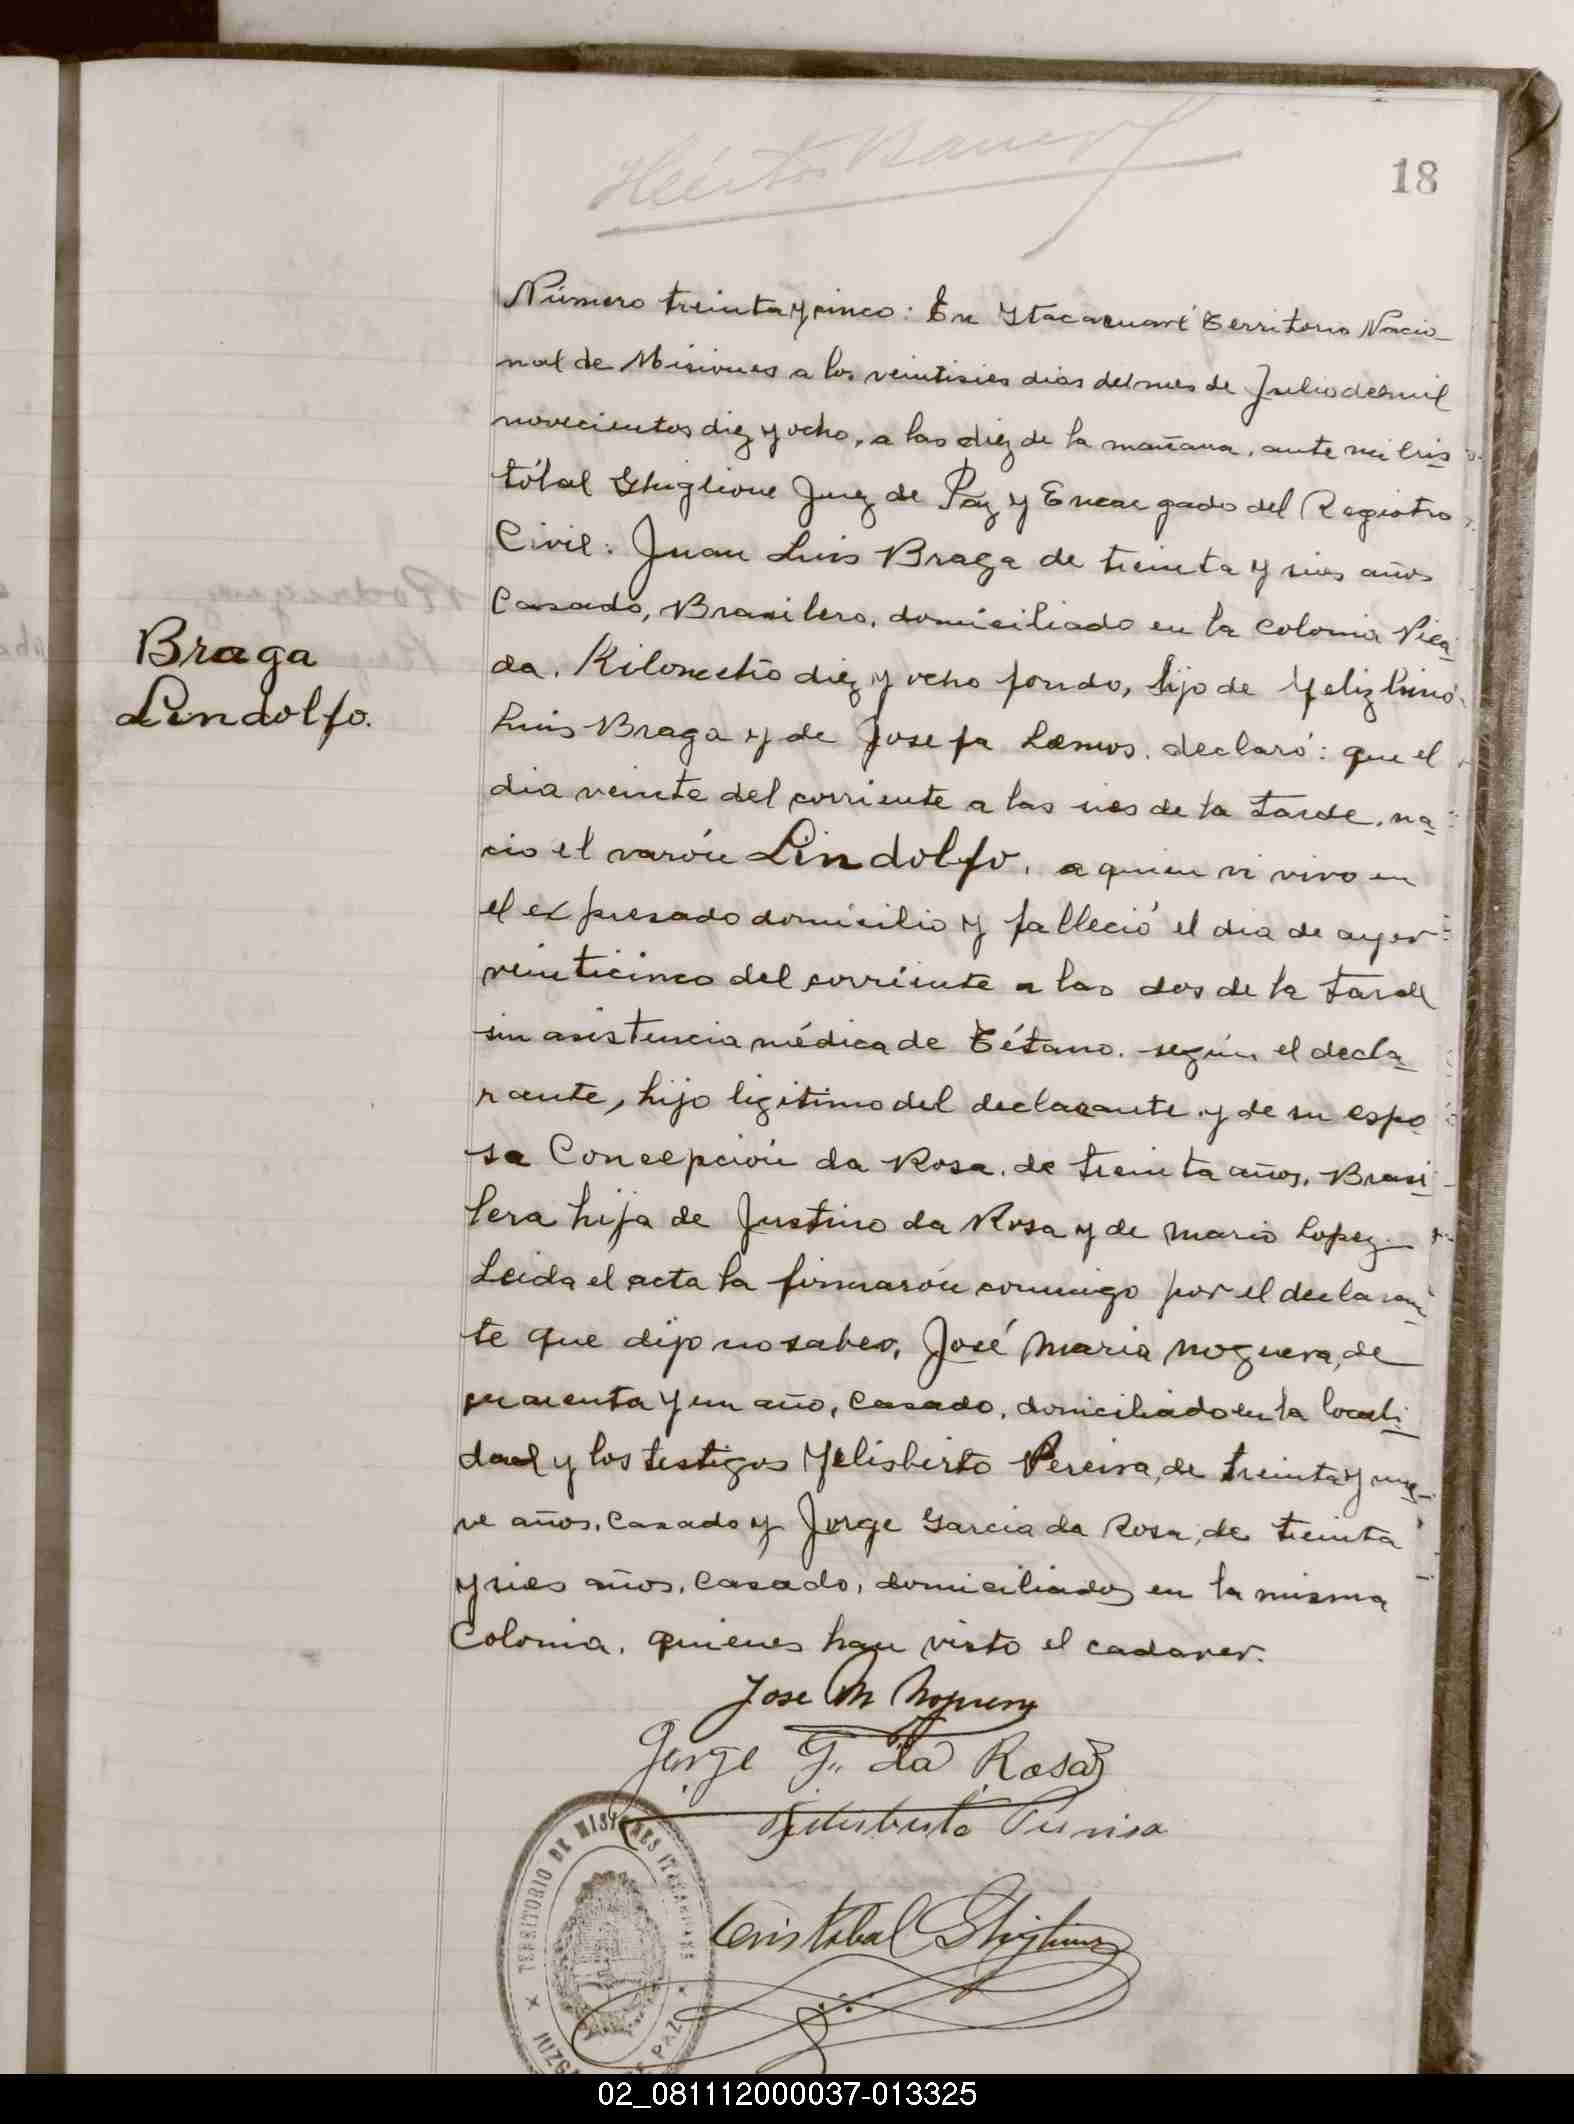 18
Número treinta y cinco: En Ytacaruaré Territorio Nacio
nal de Misiones a los veintiseis dias del mes de Julio de mil
novecientos diez y ocho, a las diez de la mañana, ante mi Cris
tóbal Ghiglione Juez de Paz y Encargado del Registro
Civil: Juan Luis Braga de treinta y seis años
Casado, Brasilero, domiciliado en la Colonia Pica
da, Kilometro diez y ocho fondo, hijo de
Luis Braga y de Josefa Lemos, declaró: que el
dia veinte del corriente a las seis de la tarde, na
cio el varón Lindolfo, a quien vi vivo en
el expresado domicilio y falleció el dia de ayer
veinticinco del corriente a las dos de la tarde
sin asistencia médica de Tétano, según el decla
rante, hijo ligitimo del declarante y de su espo
sa Concepción da Rosa, de treinta años, Brasi
lera hija de Justino da Rosa y de Maria Lopez.
Leida el acta la firmarón conmigo por el declaran
te que dijo no saber, José Maria Noguera, de
cuarenta y un año, Casado, domiciliado en la locali
dad y los testigos Felisberto Pereira, de treinta y nue
ve años, Casado y Jorge Garcia da Rosa, de treinta
y seis años, Casado, domiciliados en la misma
Colonia, quienes han visto el cadaver.
Braga
Lindolfo.
Jose M Noguera
Jorge G. da Rosa
Felisberto Pereira
Cristobal Ghiglione
TERRITORIO DE MISIONES
PAZ
02_081112000037-013325